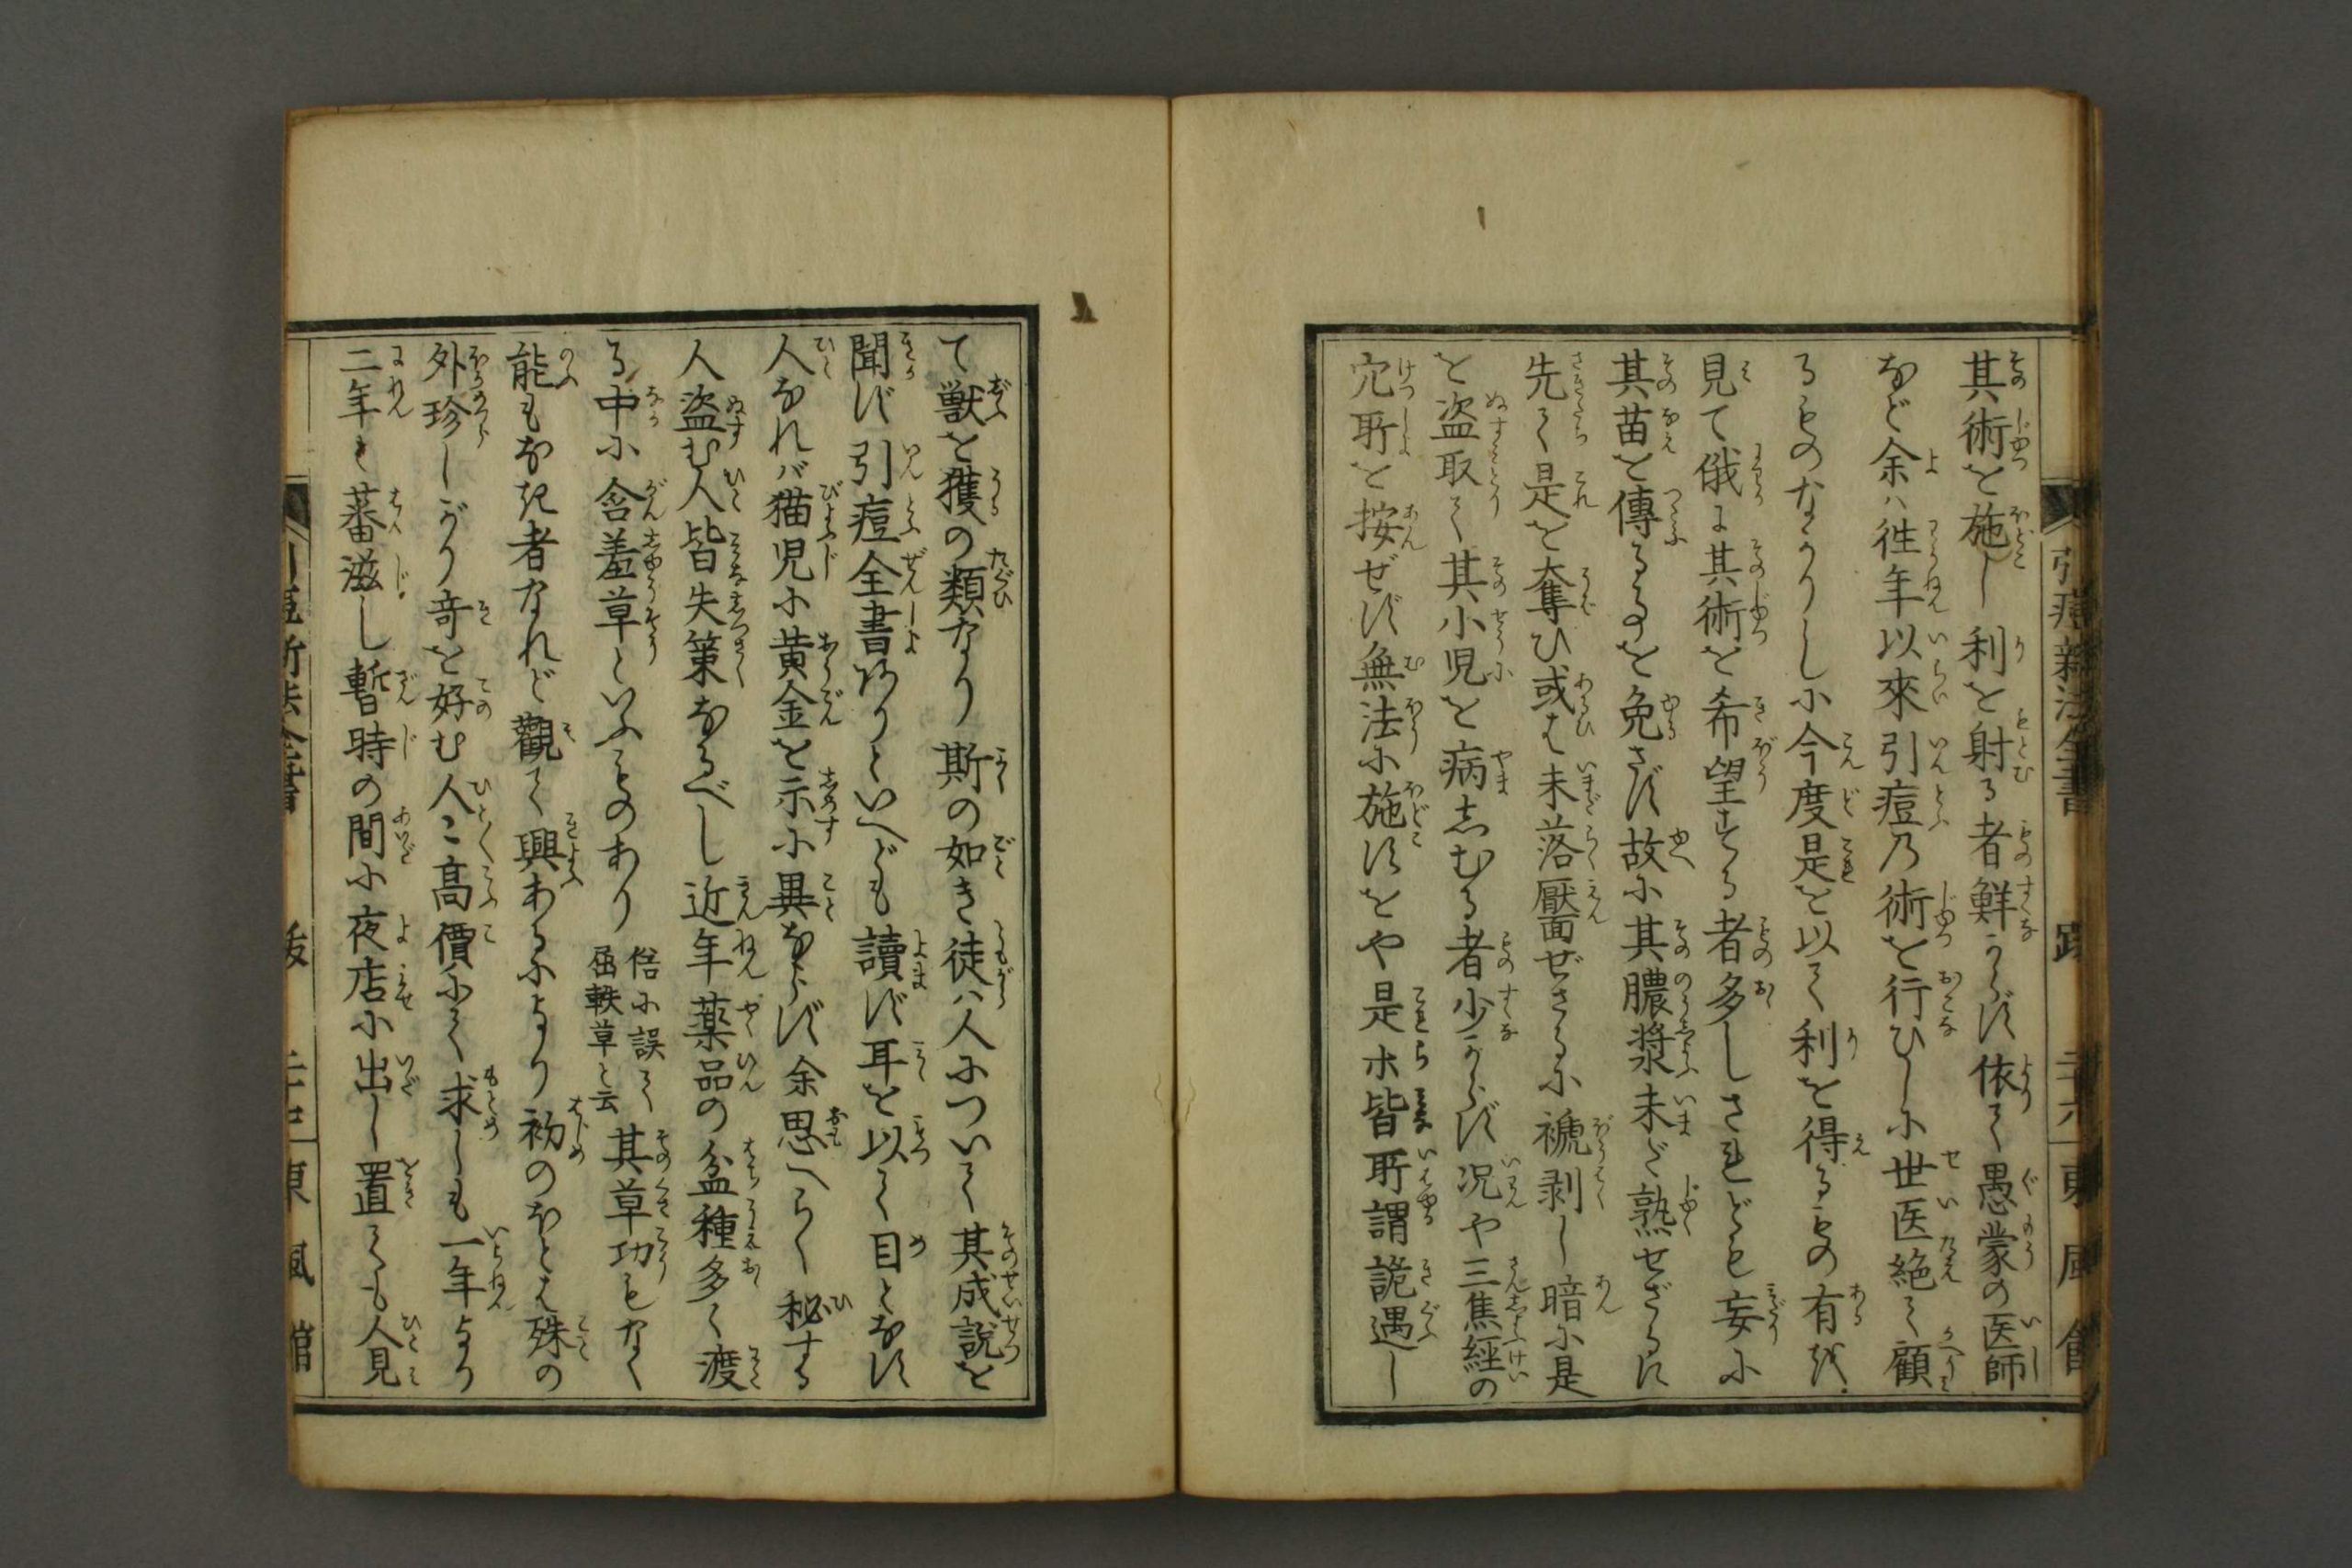 引痘新法全書 跋 東風館
其術を施し利を射る者鮮からず依て愚蒙の医師
など余ハ徃年以來引痘乃術を行ひしに世医絶て顧
るものなかりしに今度是を以て利を得るもの有を
見て俄に其術を希望する者多しされども妄に
其苗を傳るゝを免さず故に其膿漿未だ熟せざるに
先て是を奪ひ或は未落靨せざるに褫剥し暗に是
を盗取て其小児を病しむる者少からず况や三焦經の
穴所を按ぜず無法に施すをや是ホ皆所謂詭遇し
て獣を獲の類なり斯の如き徒ハ人について其成説を
聞ず引痘全書ありといへども讀ず耳を以て目となす
人なれバ猫児に黄金を示に異ならず余思へらく秘する
人盗む人皆失策なるべし近年薬品の盆種多く渡
る中に含羞草といふものあり俗に誤て屈軼草と云其草功もなく
能もなき者なれど觀て興あるにより初のほとは殊の
外珍しがり奇を好む人〻高價にて求しも一年より
二年と蕃滋し暫時の間に夜店に出し置ても人見
引痘新法全書 跋 東風館